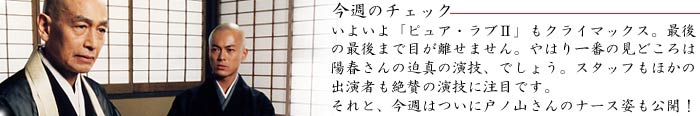 今週のチェック
いよいよ「ピュア・ラブⅡ」もクライマックス。最後
の最後まで目が離せません。やはり一番の見どころは
陽春さんの迫真の演技、でしょう。スタッフもほかの
出演者も絶賛の演技に注目です。
それと、今週はついに戸ノ山さんのナース姿も公開！